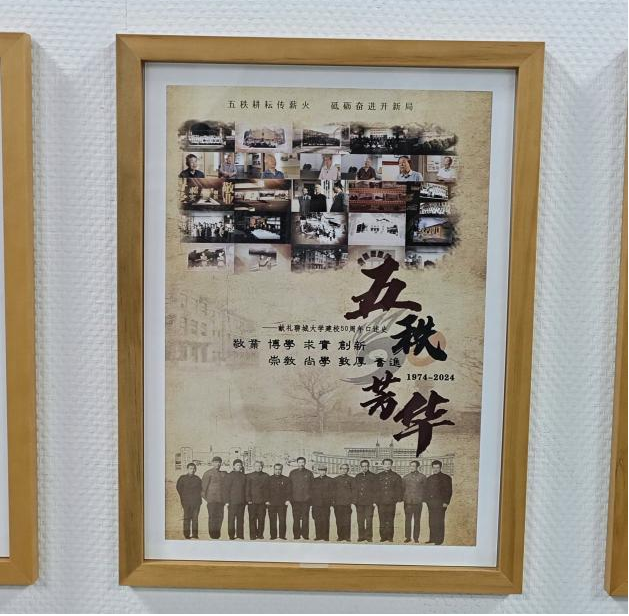 五秩耕耘传薪火 砥砺奋进开新局
五秩芳华
——献礼聊城大学建校50周年口述史
敬業 博學 求實 創新
崇教 尚學 敦厚 奮進
1974-2024